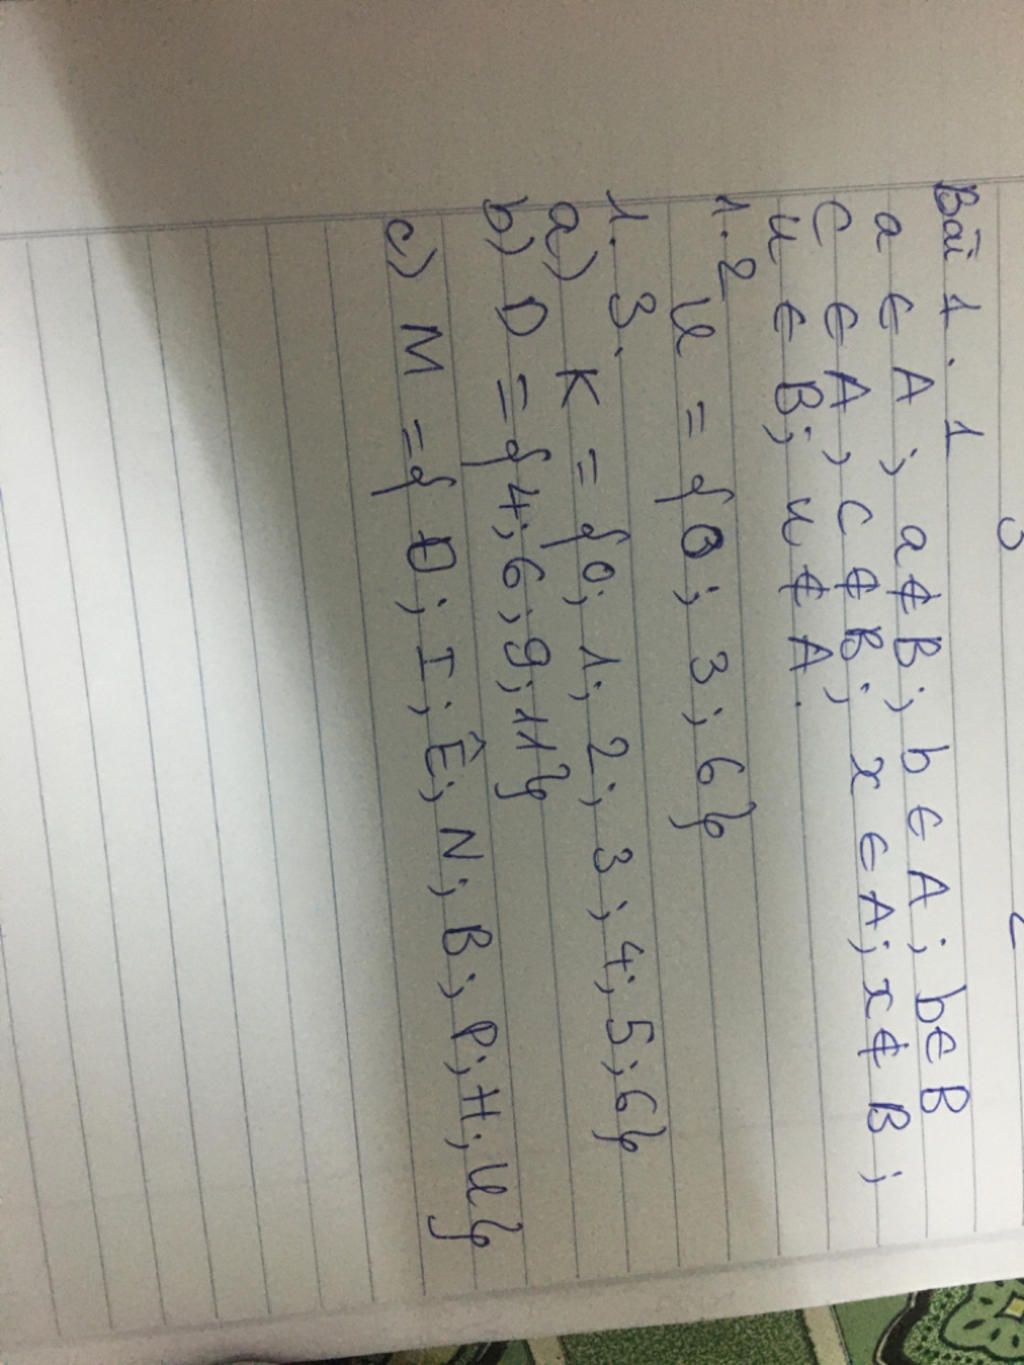 Bài 1.1
a ∈ A; a ∉ B; b ∈ A; b ∈ B
C ∈ A, C ∉ B; x ∈ A; x ∉ B;
u ∈ B; u ∉ A.
1.2
U = {0; 3; 6}
1.3.
a) K = {0; 1; 2; 3; 4; 5; 6}
b) D = {4; 6; 9; 11}
c) M = {Đ; I; Ê; N; B; P; H; U}